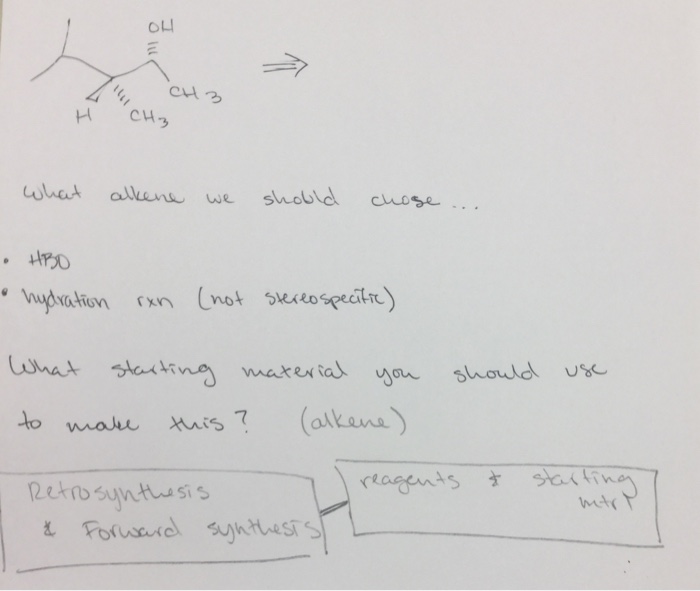 OH
CH3
H CH3
What alkene we should chose...
• HBO
• hydration rxn (not stereospecific)
What starting material you should use
to make this? (alkene)
Retrosynthesis
& Forward synthesis
reagents & starting
mtrl